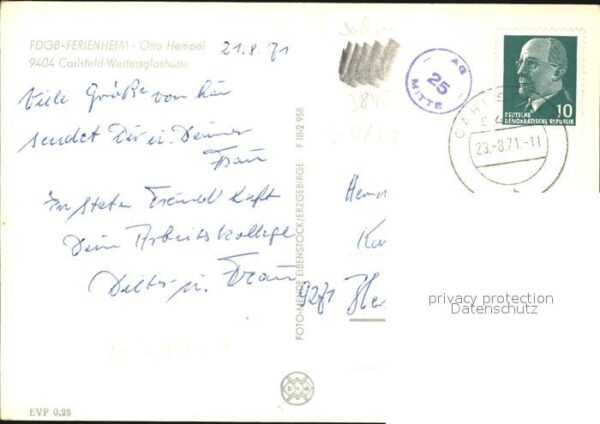 FDGB-FERIENHEIM - Otto Hempel
9404 Carlsfeld-Weitersglashütte
21.8.71
Viele Grüße von hier
sendet Dir u. Deiner
Frau
In steter Freundschaft
Dein Arbeitskollege
Dieter u. Frau
EVP 0,25
FOTO-MEHDE EIBENSTOCK/ERZGEBIRGE F III-2 958
AG
25
MITTE
10
DEUTSCHE
DEMOKRATISCHE REPUBLIK
CARLS
23.-8.71.-11
Herrn
9271
privacy protection
Datenschutz